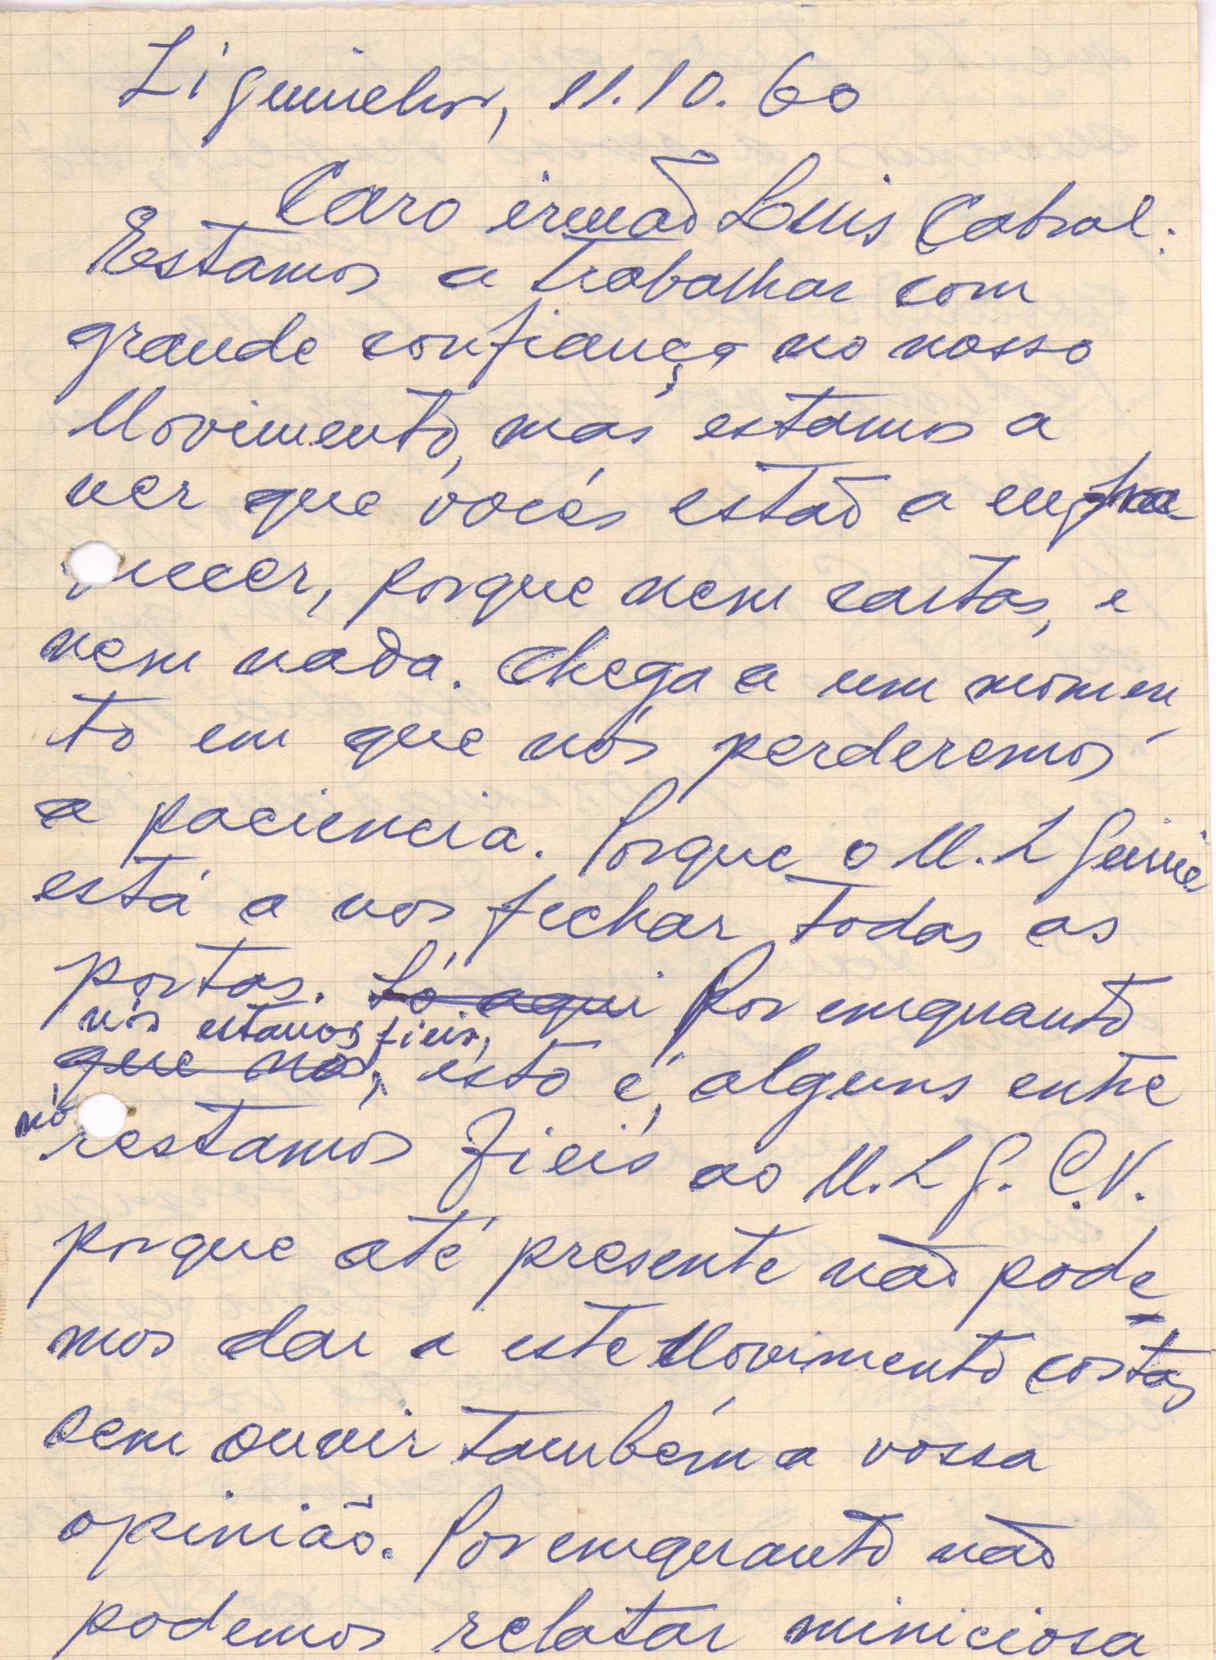 Ziguinchor, 11.10.60
Caro irmão Luis Cabral:
Estamos a trabalhar com
grande confiança no nosso
Movimento, mas estamos a
ver que vocês estão a enfra-
quecer, porque nem cartas, e
nem nada. Chega a um momen-
to em que nós perderemos
a paciencia. Porque o M. L Guiné
está a nos fechar todas as
portas. Só aqui Por emquanto
nós estamos fieis,
que nós, isto é, alguns entre
nós restamos fieis ao M. L G. C.V.
porque até presente não pode
mos dar a este Movimento costas
sem ouvir também a vossa
opinião. Por emquanto não
podemos relatar miniciosa